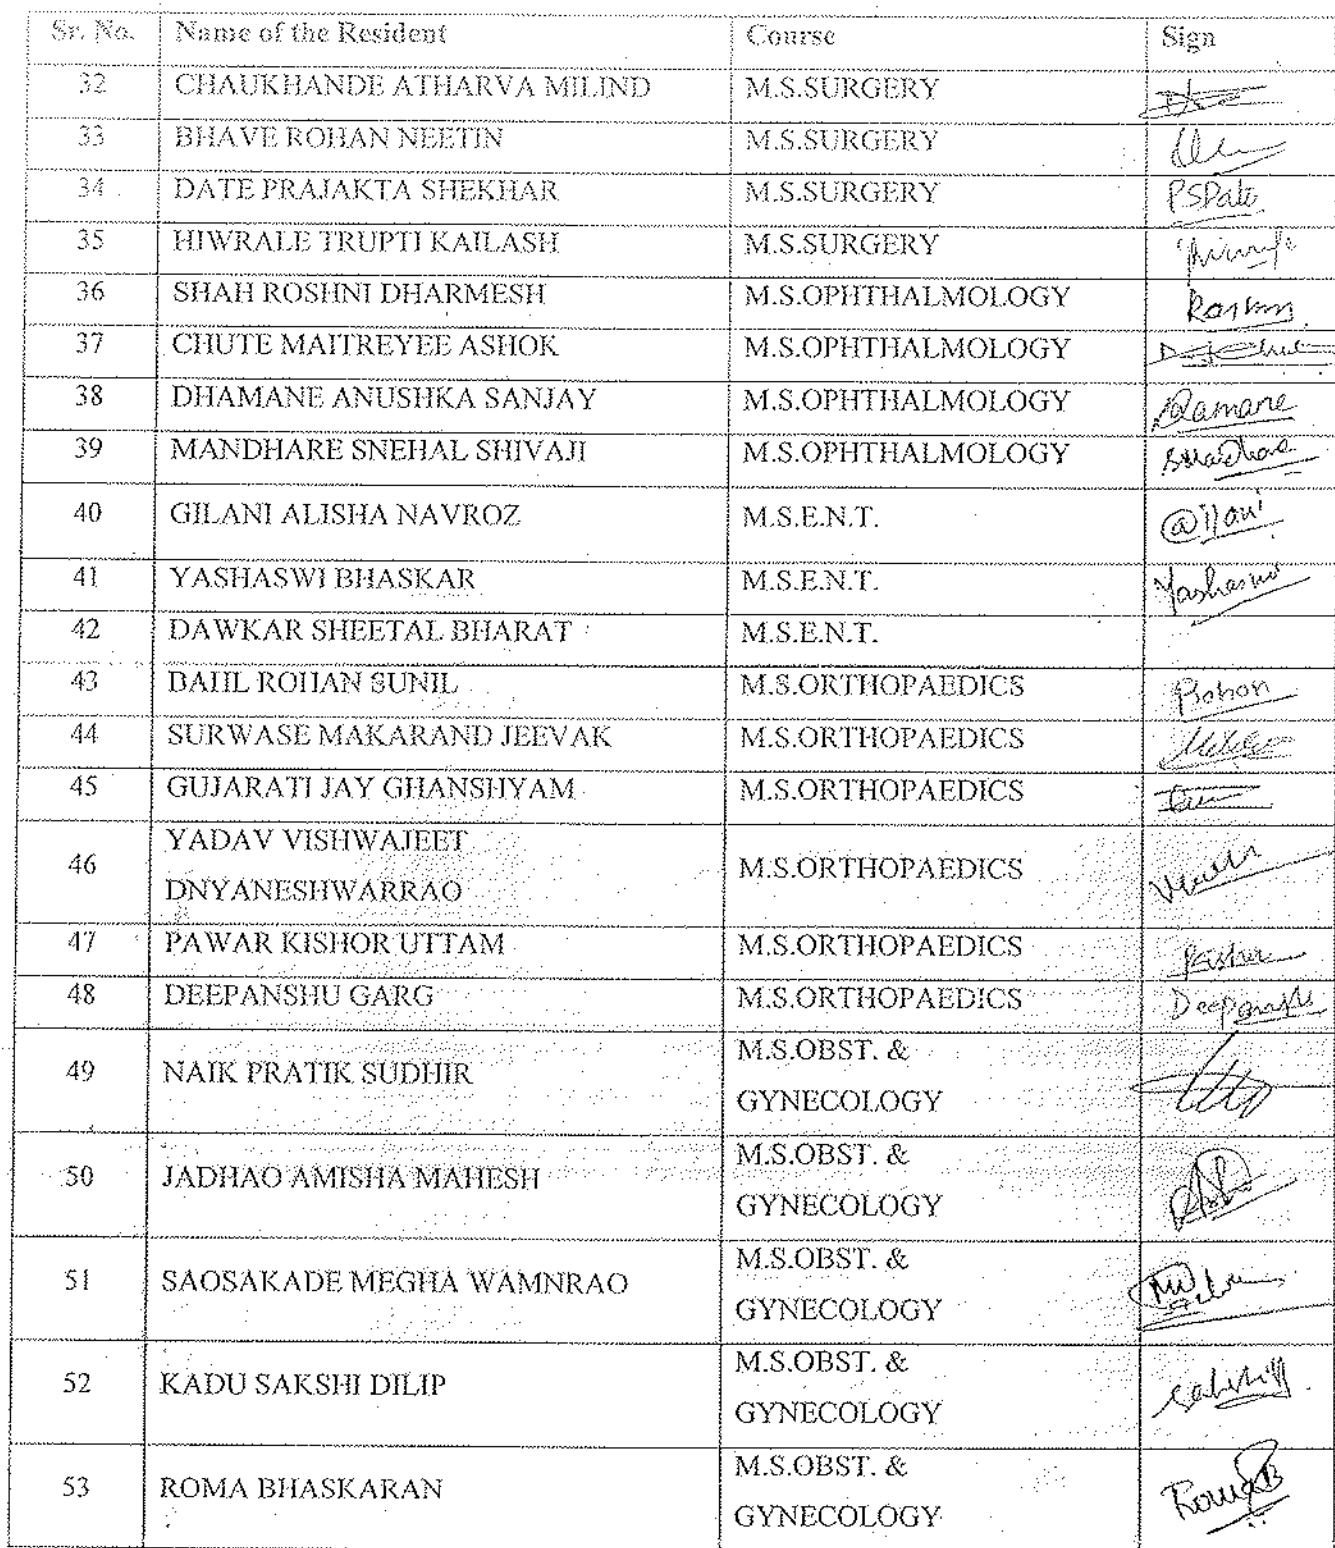 Sr. No. Name of the Resident Course Sign
32 CHAUKHANDE ATHARVA MILIND M.S.SURGERY
33 BHAVE ROHAN NEETIN M.S.SURGERY
34 DATE PRAJAKTA SHEKHAR M.S.SURGERY PSDate
35 HIWRALE TRUPTI KAILASH M.S.SURGERY
36 SHAH ROSHNI DHARMESH M.S.OPHTHALMOLOGY
37 CHUTE MAITREYEE ASHOK M.S.OPHTHALMOLOGY
38 DHAMANE ANUSHKA SANJAY M.S.OPHTHALMOLOGY
39 MANDHARE SNEHAL SHIVAJI M.S.OPHTHALMOLOGY
40 GILANI ALISHA NAVROZ M.S.E.N.T. Gilani
41 YASHASWI BHASKAR M.S.E.N.T. Yashaswi
42 DAWKAR SHEETAL BHARAT M.S.E.N.T.
43 BAHL ROHAN SUNIL M.S.ORTHOPAEDICS Rohan
44 SURWASE MAKARAND JEEVAK M.S.ORTHOPAEDICS
45 GUJARATI JAY GHANSHYAM M.S.ORTHOPAEDICS
46 YADAV VISHWAJEET M.S.ORTHOPAEDICS
DNYANESHWARRAO
47 PAWAR KISHOR UTTAM M.S.ORTHOPAEDICS
48 DEEPANSHU GARG M.S.ORTHOPAEDICS Deepanshu
49 NAIK PRATIK SUDHIR M.S.OBST. &
GYNECOLOGY
50 JADHAO AMISHA MAHESH M.S.OBST. &
GYNECOLOGY
51 SAOSAKADE MEGHA WAMNRAO M.S.OBST. &
GYNECOLOGY
52 KADU SAKSHI DILIP M.S.OBST. &
GYNECOLOGY
53 ROMA BHASKARAN M.S.OBST. & RomaB
GYNECOLOGY